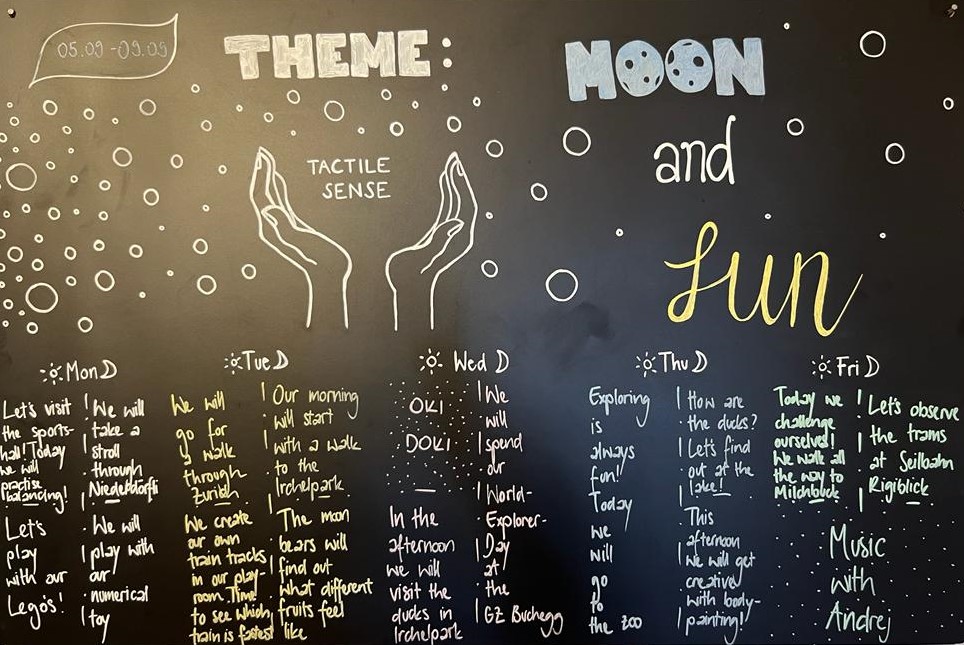 05.09 - 09.09
THEME:
MOON
and
Sun
TACTILE
SENSE
Mon
Let's visit
the sports-
hall! Today
we will
practise
balancing!
We will
take a
stroll
through
Niederdörfli
Let's
play
with our
Lego's!
We will
play with
our
numerical
toy
Tue
We will
go for
a walk
through
Zürich
Our morning
will start
with a walk
to the
Irchelpark.
We create
our own
train tracks
in our play-
room. Time
to see which
train is fastest
The moon
bears will
find out
what different
fruits feel
like
Wed
OKI
DOKI
We
will
spend
our
World-
Explorer-
Day
at
the
GZ Buchegg
In the
afternoon
we will
visit the
ducks in
Irchelpark
Thu
Exploring
is
always
fun!
Today
we
will
go
to
the zoo
How are
the ducks?
Let's find
out at the
lake!
This
afternoon
we will get
creative
with body-
painting!
Fri
Today we
challenge
ourselves!
We walk all
the way to
Milchbuck
Let's observe
the trams
at Seilbahn
Rigiblick
Music
with
Andrej